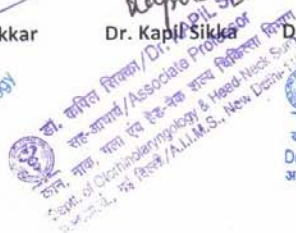 kkar
Dr. Kapil Sikka
D
डा. कपिल सिक्का/Dr. KAPIL S
सह-आचार्य/Associate Professor
कान, नाक, गला एवं हैड-नेक शल्य चिकित्सा विभाग
Deptt. of Otorhinolaryngology & Head-Neck Sur
नई दिल्ली/A.I.I.M.S., New Delhi-1
ogy
D